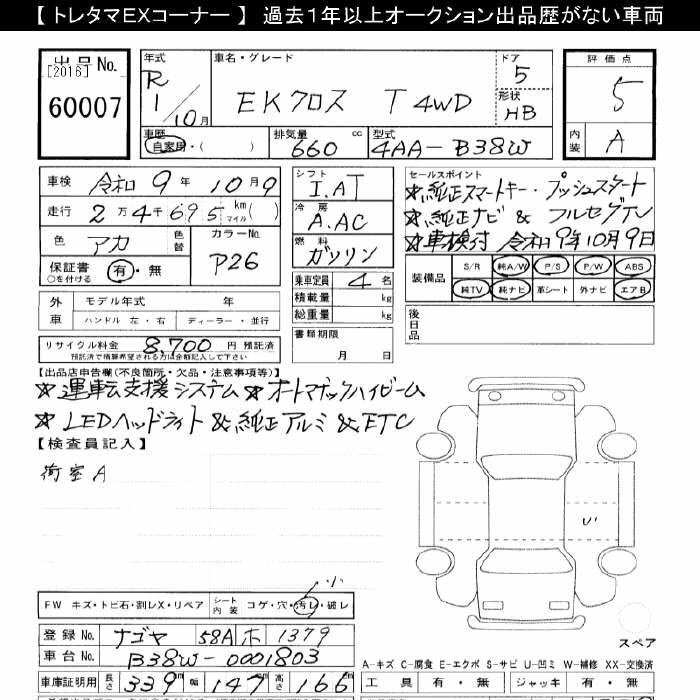 【 トレタマEXコーナー 】 過去1年以上オークション出品歴がない車両
出品No.
[2016]
60007
年式
R
1/10月
車名・グレード
EKクロス T 4WD
ドア
5
形状
HB
評価点
5
内装
A
車歴
自家用・( )
排気量
660 cc
型式
4AA-B38W
車検 令和 9年 10月 9
走行 2万4千695 km マイル ( )
色 アカ
色替
カラーNo.
P26
保証書 有・無
○を付ける
シフト
I.AT
冷房
A.AC
燃料
ガソリン
乗車定員 4名
積載量 kg
総重量 kg
書類期限
月 日
セールスポイント
☆純正スマートキー・プッシュスタート
☆純正ナビ & フルセグTV
☆車検付 令和9年10月9日
装備品
S/R 純A/W P/S P/W ABS
純TV 純ナビ 革シート 外ナビ エアB
後日品
外車
モデル年式 年
ハンドル 左・右
ディーラー・並行
リサイクル料金 8,700 円 預託済
預託済で精算希望される方は金額記入して下さい
【出品店申告欄(不良箇所・欠品・注意事項等)】
☆運転支援システム☆オートマチックハイビーム
☆LEDヘッドライト&純正アルミ&ETC
【検査員記入】
荷室A
FW キズ・トビ石・割レX・リペア
シート内装 コゲ・穴・汚レ・破レ
小
登録No. ナゴヤ 581 ホ 1379
車台No. B38W-0001803
車庫証明用 長さ 339 幅 147 高さ 166
U'
スペア
A-キズ C-腐食 E-エクボ S-サビ U-凹ミ W-補修 XX-交換済
工具 有・無 ジャッキ 有・無